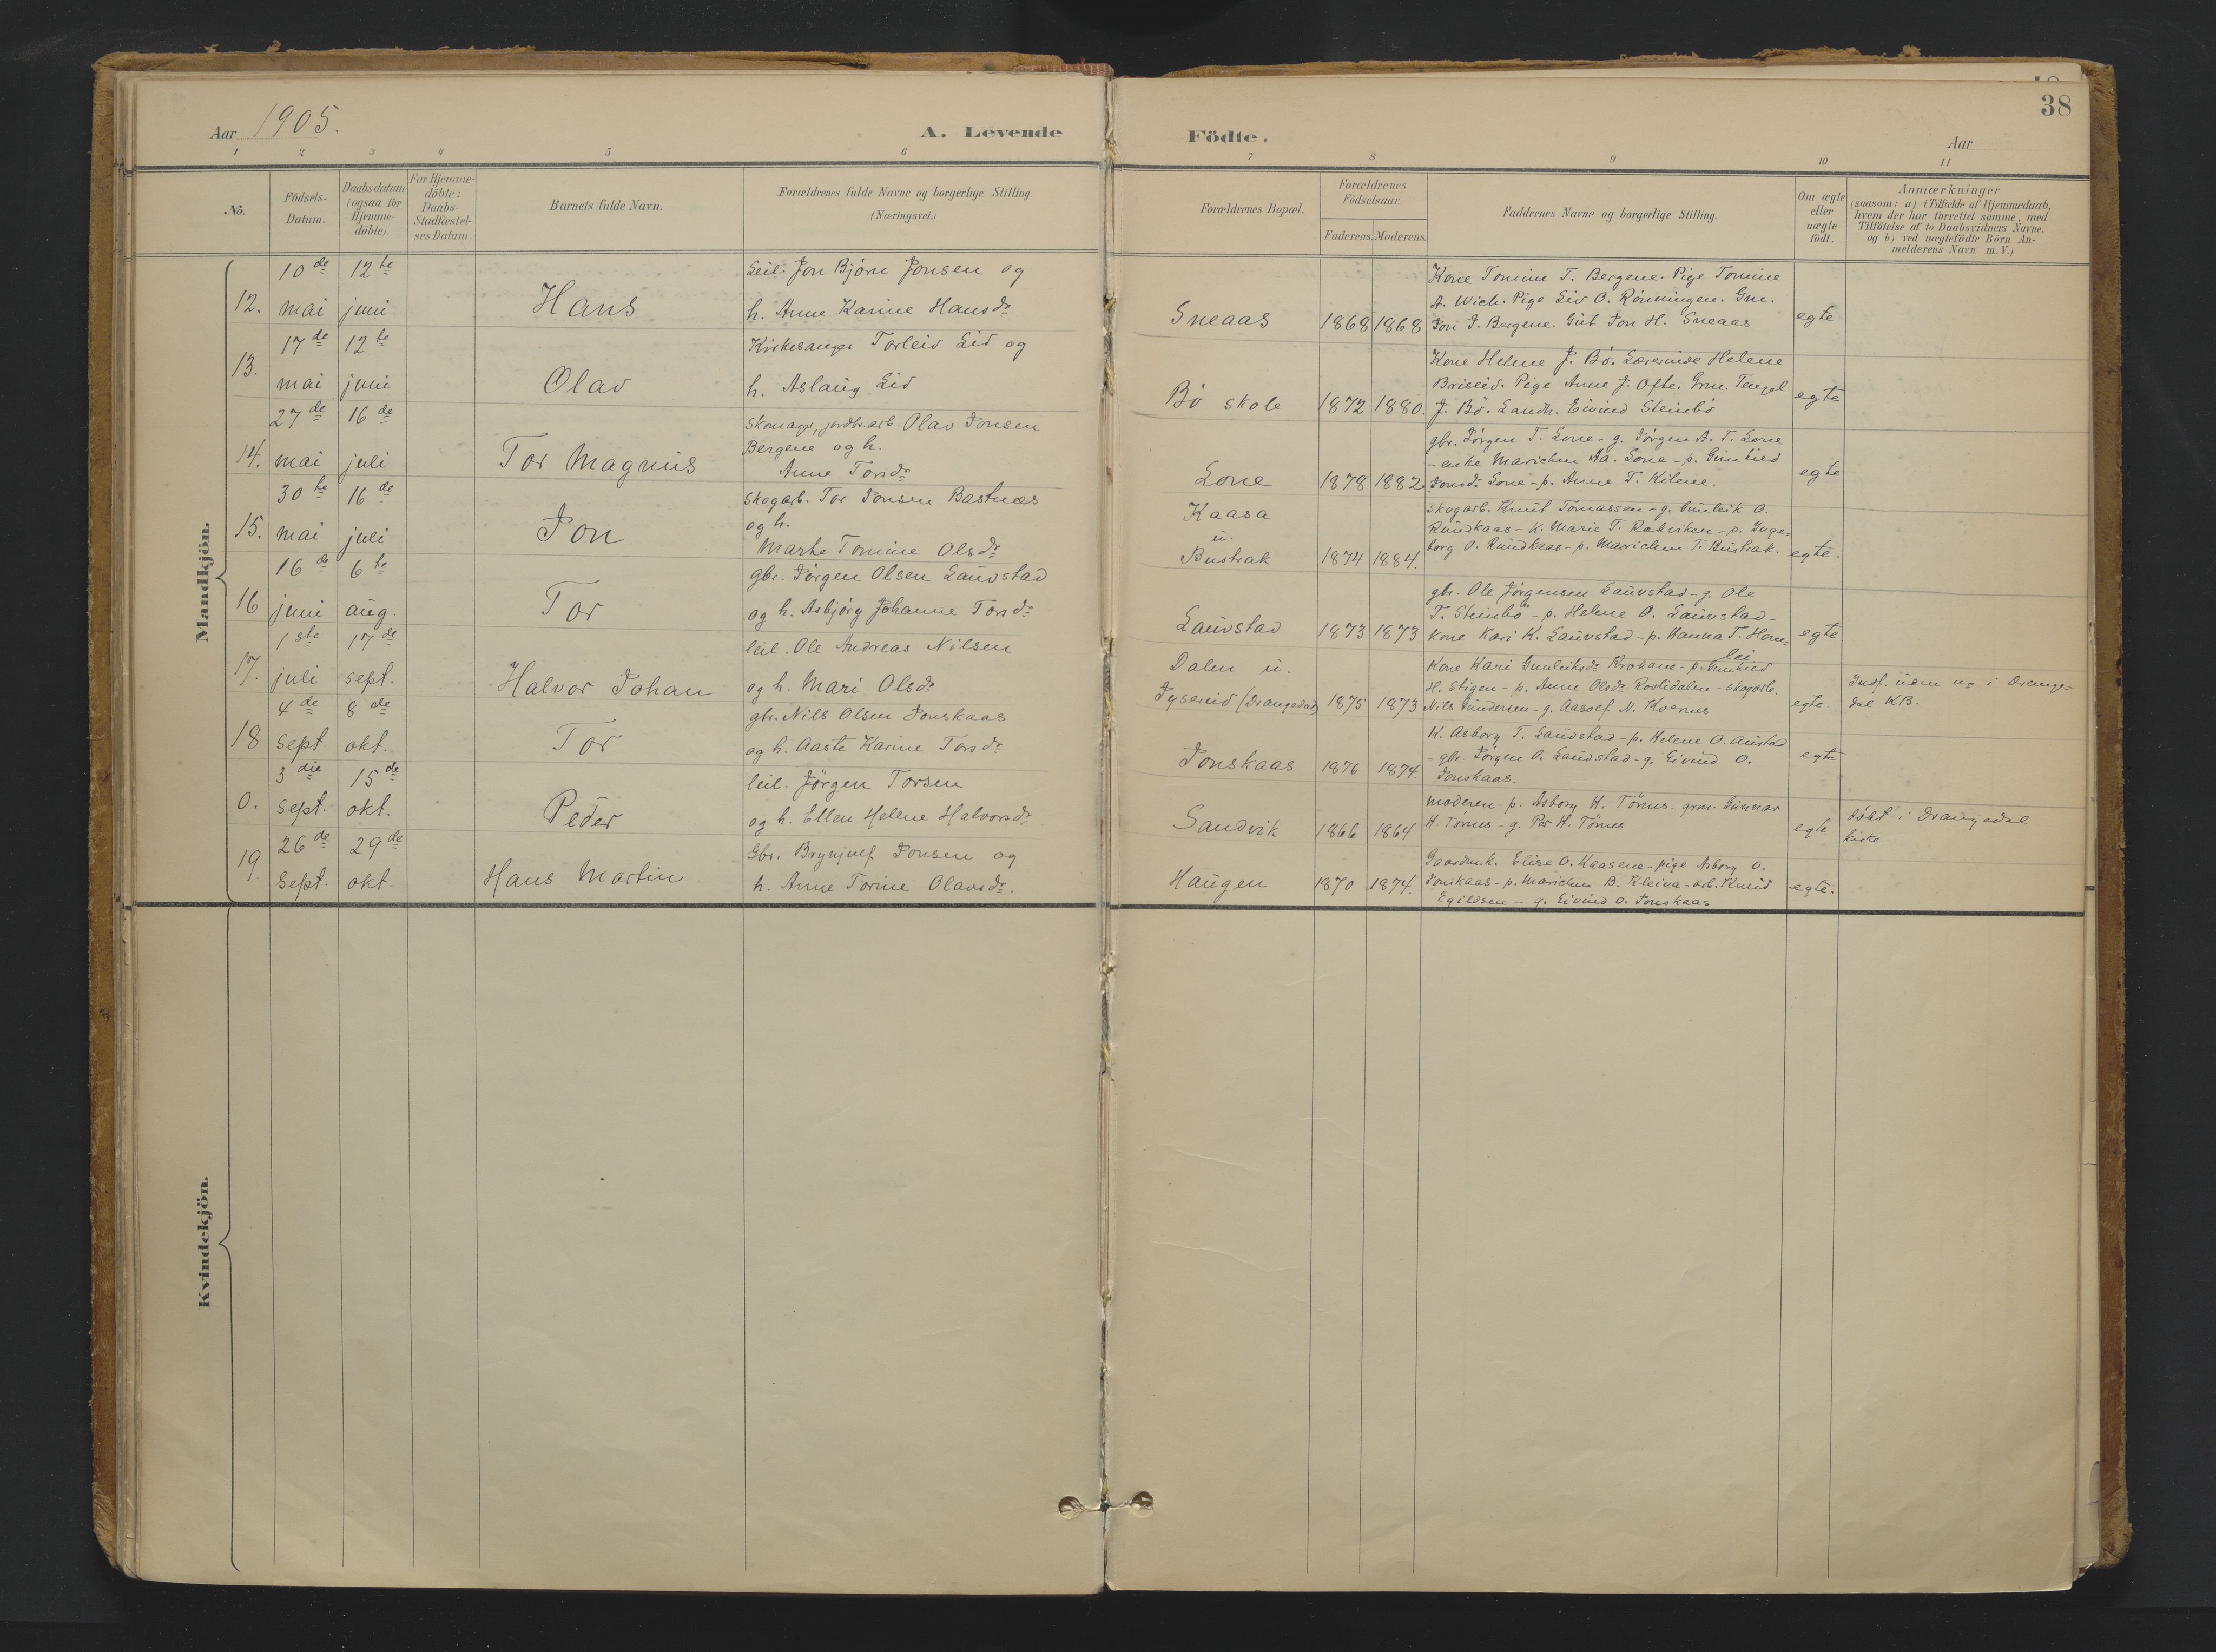 Aar 1905.
A. Levende
Födte.
Aar
38
1 2 3 4 5 6 7 8 9 10 11
No.
Födsels-
Datum.
Daabsdatum
(ogsaa for
Hjemme-
döbte).
For Hjemme-
döbte:
Daabs-
Stadfæstel-
ses Datum.
Barnets fulde Navn.
Forældrenes fulde Navne og borgerlige Stilling.
(Næringsvei.)
Forældrenes Bopæl.
Forældrenes
Födselsaar.
Faderens. Moderens.
Faddernes Navne og borgerlige Stilling.
Om ægte
eller
uægte
födt.
Anmærkninger
(saasom: a) i Tilfælde af Hjemmedaab,
hvem der har forrettet samme, med
Tilföielse af to Daabsvidners Navne.
og b) ved uægtefödte Börn An-
melderens Navn m.V.)
Mandkjön.
12.
10de mai
12te juni
Hans
Leil. Jon Björn Jonsen og
h. Anne Karine Hansdr
Sneaas
1868 1868
Kone Tomine T. Bergene. Pige Tomine
A. Wich. Pige Liv O. Rönningen. Gm.
Jon J. Bergene. Gut Jon H. Sneaas
egte
13.
17de mai
12te juni
Olav
Kirkesanger Torleiv Lid og
h. Aslaug Lid
Bö skole
1872 1880.
Kone Helene J. Bö. Lærerinde Helene
Briseid. Pige Anne J. Ofte. Gm. Tengel
J. Bö. Landh. Eivind Steinbö
egte
14.
27de mai
16de juli
Tor Magnus
Skomager, jordbr.arb. Olav Jonsen
Bergene og h.
Anne Torsdr
Lone
1878 1882.
gbr. Jörgen T. Lone - g. Jörgen A. T. Lone
- enke Marichen Aa. Lone - p. Gunhild
Jonsd. Lone - p. Anne T. Kilene.
egte
15.
30te mai
16de juli
Jon
Skogarb. Tor Jonsen Bastnes
og h.
Marte Tomine Olsdr
Kaasa
u.
Bustrak
1874 1884.
Skogarb. Knut Tomassen - g. Gunleik O.
Rundkaas - k. Marie T. Rækviken - p. Inge-
borg O. Rundkaas - p. Marichen T. Bustrak.
egte.
16
16de juni
6te aug.
Tor
gbr. Jörgen Olsen Lauvstad
og h. Asbjörg Johanne Torsdr
Lauvstad
1873 1873
gbr. Ole Jörgensen Lauvstad - g. Ole
T. Steinbö - p. Helene O. Lauvstad -
kone Kari K. Lauvstad - p. Hanna T. Hom-
lei
egte
17.
1ste juli
17de sept.
Halvor Johan
leil. Ole Andreas Nilsen
og h. Mari Olsdr
Dalen u.
(Drangedal)
1875 1873
Kone Kari Gunleiksdr Krokane - p. Gunhild
H. Stigen - p. Anne Olsdr Rostidalen - skogarb.
Nils Gundersen - g. Aasolf N. Kvernes
egte.
Indf. uden no i Drange-
dal KB.
18
4de sept.
8de okt.
Tor
gbr. Nils Olsen Jonskaas
og h. Aaste Karine Torsdr
Jonskaas
1876 1874.
K. Asborg T. Lauvstad - p. Helene O. Austad
- gbr. Jörgen O. Lauvstad - g. Eivind O.
Jonskaas.
egte
0.
3die sept.
15de okt.
Peder
leil. Jörgen Torsen
og h. Ellen Helene Halvorsdr
Sandvik
1866 1864
moderen - p. Asborg H. Törnes - grm. Gunnar
H. Törnes - g. Per H. Törnes
egte
döbt i Drangedal
kirke.
19.
26de sept.
29de okt.
Hans Martin
Gbr. Brynjulf Jonsen og
h. Anne Torine Olavsdr.
Haugen
1870 1874.
Gaardm.k. Elise O. Kaasene - pige Asborg O.
Jonskaas - p. Marichen B. Kleiva - arb. Knud
Egildsen - g. Eivind O. Jonskaas
egte.
Kvindekjön.